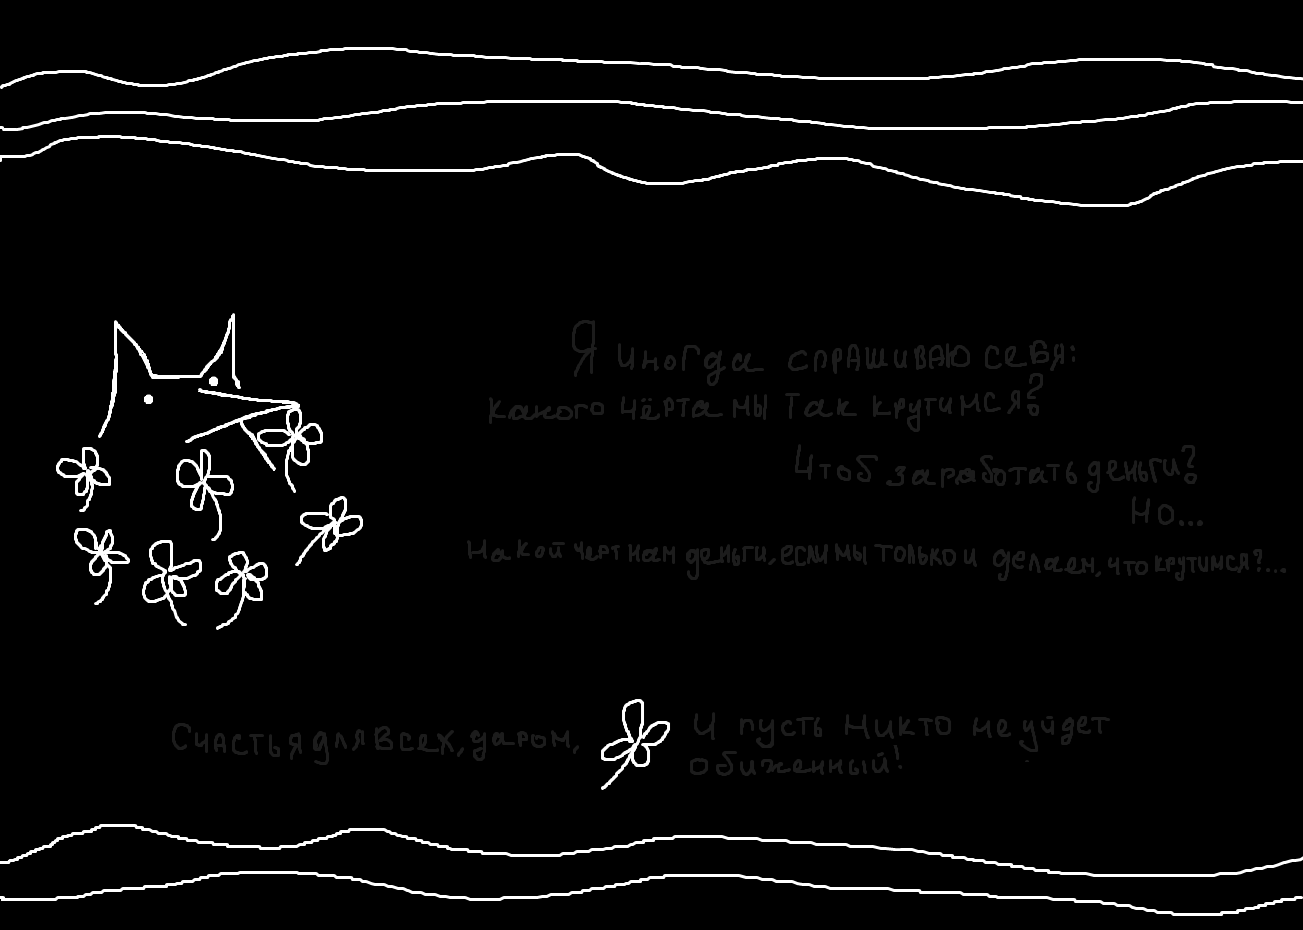 Я иногда спрашиваю себя:
какого чёрта мы так крутимся?
Чтоб заработать деньги?
Но...
На кой черт нам деньги, если мы только и делаем, что крутимся?...
Счастья для всех, даром,
И пусть никто не уйдет
обиженный!